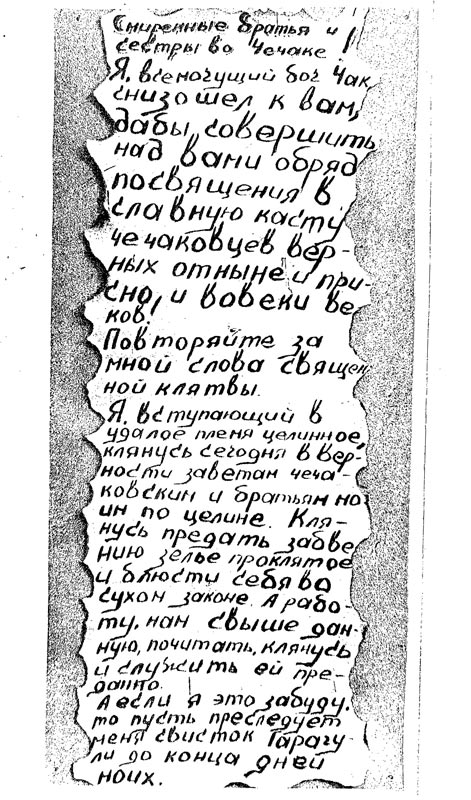 Смиренные братья и
сестры во Чечаке!
Я, всемогущий бог Чак,
снизошел к вам,
дабы совершить
над вами обряд
посвящения в
славную касту
чечаковцев вер-
ных отныне и при-
сно, и вовеки ве
ков!
Повторяйте за
мной слова священ
ной клятвы.
Я, вступающий в
удалое племя целинное,
клянусь сегодня в вер-
ности заветам чеча-
ковским и братьям мо
им по целине. Кля-
нусь предать забве
нию зелье проклятое
и блюсти себя во
сухом законе. А рабо-
ту, нам свыше дан-
ную, почитать, клянусь
и служить ей пре-
данно.
А если я это забуду,
то пусть преследует
меня свисток Тарагу-
ли до конца дней
моих.